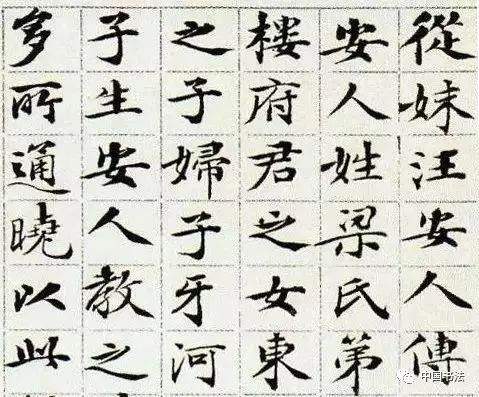 從妹汪安人傳
安人姓梁氏第
樓府君之女東
之子婦子牙河
子生安人教之
多所通曉以此
中国书法